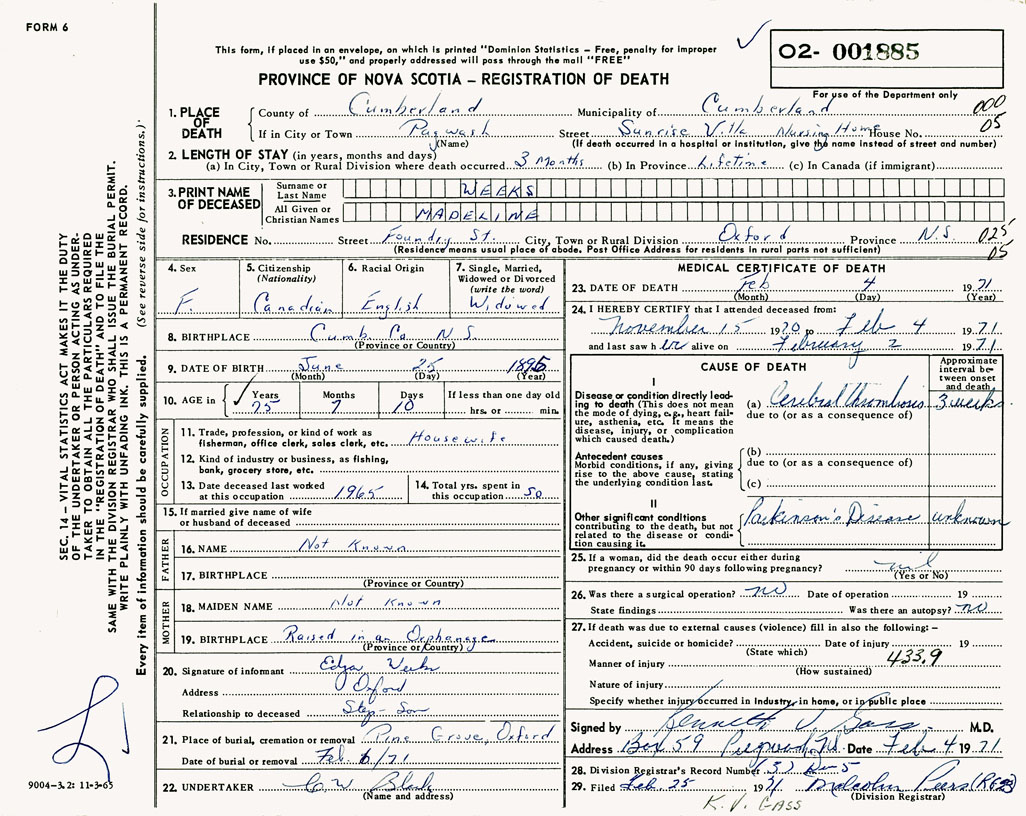 FORM 6
This form, if placed in an envelope, on which is printed "Dominion Statistics – Free, penalty for improper
use $50," and properly addressed will pass through the mail "FREE"
PROVINCE OF NOVA SCOTIA – REGISTRATION OF DEATH
02- 001885
For use of the Department only
000
05
1. PLACE OF DEATH
County of Cumberland Municipality of Cumberland
If in City or Town Pugwash Street Sunrise Villa Nursing Home House No.
(Name) (If death occurred in a hospital or institution, give the name instead of street and number)
2. LENGTH OF STAY (in years, months and days)
(a) In City, Town or Rural Division where death occurred 3 Months (b) In Province Lifetime (c) In Canada (if immigrant)
3. PRINT NAME OF DECEASED
Surname or Last Name WEEKS
All Given or Christian Names MADELINE
RESIDENCE No. Street Foundry St. City, Town or Rural Division Oxford Province N.S. 025
(Residence means usual place of abode. Post Office Address for residents in rural parts not sufficient) 05
4. Sex F.
5. Citizenship (Nationality) Canadian
6. Racial Origin English
7. Single, Married, Widowed or Divorced (write the word) Widowed
8. BIRTHPLACE Cumb. Co. N.S.
(Province or Country)
9. DATE OF BIRTH June 25 1895
(Month) (Day) (Year)
10. AGE in Years 75 Months 7 Days 10 If less than one day old
hrs. or min.
OCCUPATION
11. Trade, profession, or kind of work as
fisherman, office clerk, sales clerk, etc. Housewife
12. Kind of industry or business, as fishing,
bank, grocery store, etc.
13. Date deceased last worked
at this occupation 1965
14. Total yrs. spent in
this occupation 50
15. If married give name of wife
or husband of deceased
FATHER
16. NAME Not Known
17. BIRTHPLACE
(Province or Country)
MOTHER
18. MAIDEN NAME Not Known
19. BIRTHPLACE Raised in an Orphanage
(Province or Country)
20. Signature of informant
Address Oxford
Relationship to deceased Step-Son
21. Place of burial, cremation or removal Pine Grove, Oxford
Date of burial or removal Feb. 6/71
22. UNDERTAKER C. W.
(Name and address)
MEDICAL CERTIFICATE OF DEATH
23. DATE OF DEATH Feb 4 1971
(Month) (Day) (Year)
24. I HEREBY CERTIFY that I attended deceased from:
November 15 1970 to Feb 4 1971
and last saw her alive on February 2 1971
CAUSE OF DEATH
Approximate interval between onset and death
I
Disease or condition directly leading to death (This does not mean
the mode of dying, e.g., heart failure, asthenia, etc. It means the
disease, injury, or complication
which caused death.)
(a) Cerebral thrombosis 3 weeks
due to (or as a consequence of)
Antecedent causes
Morbid conditions, if any, giving
rise to the above cause, stating
the underlying condition last.
(b)
due to (or as a consequence of)
(c)
II
Other significant conditions
contributing to the death, but not
related to the disease or condition causing it.
Parkinson's Disease unknown
25. If a woman, did the death occur either during
pregnancy or within 90 days following pregnancy? nil
(Yes or No)
26. Was there a surgical operation? no Date of operation 19
State findings Was there an autopsy? no
27. If death was due to external causes (violence) fill in also the following: –
Accident, suicide or homicide? Date of injury 19
(State which)
433.9
Manner of injury
(How sustained)
Nature of injury
Specify whether injury occurred in Industry, in home, or in public place
Signed by Kenneth V. Gass M.D.
Address Box 59 Pugwash, N.S. Date Feb 4 1971
28. Division Registrar's Record Number
29. Filed Feb. 25 1971 Malcolm
(Division Registrar)
K. V. GASS
SEC. 14 – VITAL STATISTICS ACT MAKES IT THE DUTY
OF THE UNDERTAKER OR PERSON ACTING AS UNDER-
TAKER TO OBTAIN ALL THE PARTICULARS REQUIRED
IN THE "REGISTRATION OF DEATH" AND TO FILE THE
SAME WITH THE DIVISION REGISTRAR WHO SHALL ISSUE THE BURIAL PERMIT.
WRITE PLAINLY WITH UNFADING INK. THIS IS A PERMANENT RECORD.
Every item of information should be carefully supplied. (See reverse side for instructions.)
9004-3.2: 11-3-65